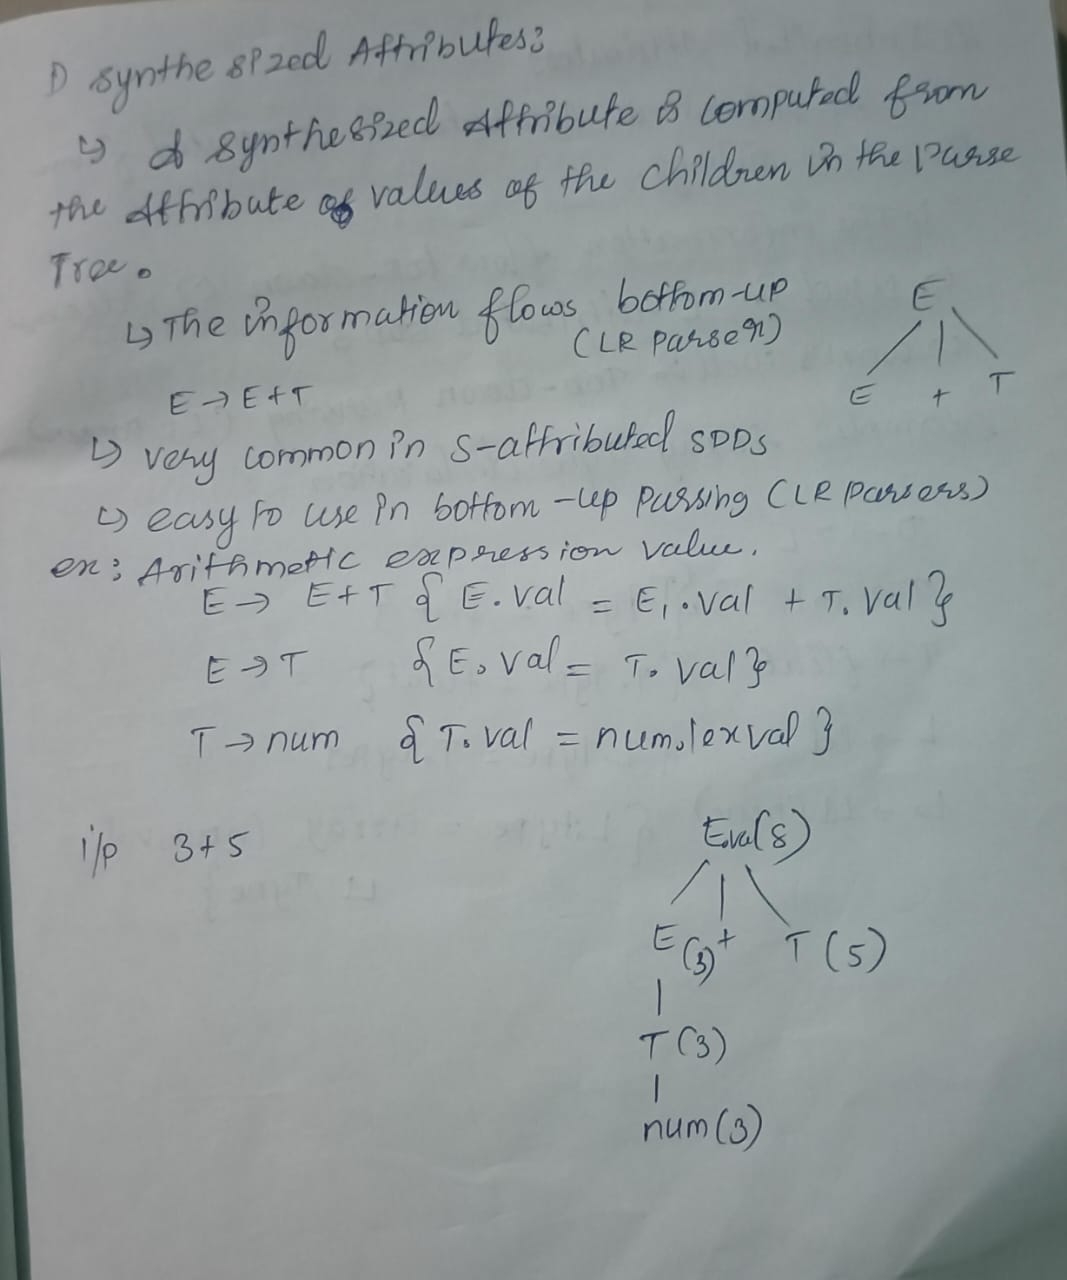 1) Synthesized Attributes:
↳ A Synthesized Attribute is computed from
the Attribute of values of the children in the Parse
Tree.
↳ The information flows bottom-up
(LR parser)
E → E+T
E
E + T
↳ very common in S-attributed SDDs
↳ easy to use in bottom-up parsing (LR parsers)
ex: Arithmetic expression value.
E → E+T { E.val = E₁.val + T.val }
E → T { E.val = T.val }
T → num { T.val = num.lexval }
i/p 3+5
E.val(8)
E(3) + T(5)
T(3)
num(3)